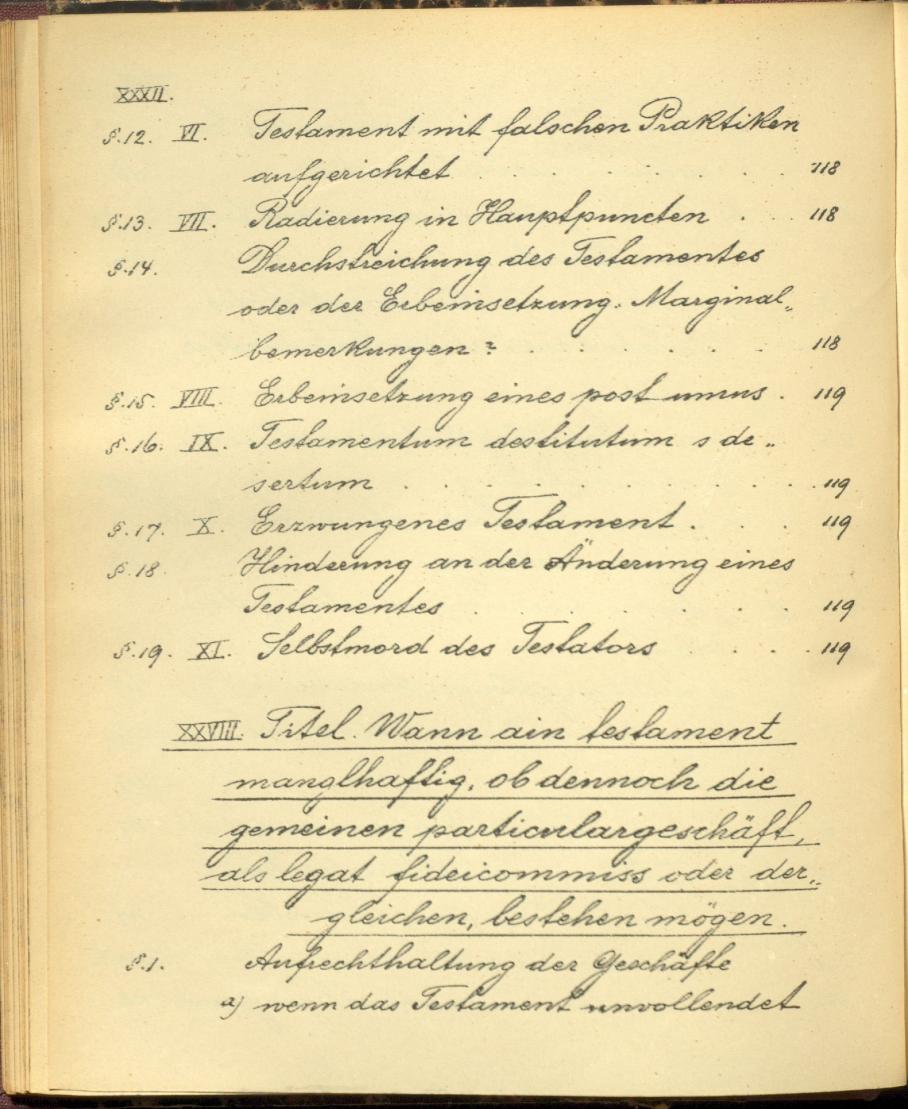 XXXII.
§.12. VI. Testament mit falschen Praktiken
aufgerichtet . . . . . . . . 118
§.13. VII. Radierung in Hauptpuncten . . . 118
§.14. Durchstreichung des Testamentes
oder der Erbeinsetzung. Marginal„
bemerkungen? . . . . . . 118
§.15. VIII. Erbeinsetzung eines post umus . 119
§.16. IX. Testamentum destitutum s de„
sertum . . . . . . . . . . 119
§.17. X. Erzwungenes Testament . . . 119
§.18 Hinderung an der Änderung eines
Testamentes . . . . . . . . 119
§.19. XI. Selbstmord des Testators . . . . 119
XXVIII. Titel. Wann ain testament
manglhaftig, ob dennoch die
gemeinen particulargeschäft,
als legat fideicommiss oder der„
gleichen, bestehen mögen.
§.1. Aufrechthaltung der Geschäfte
a) wenn das Testament unvollendet